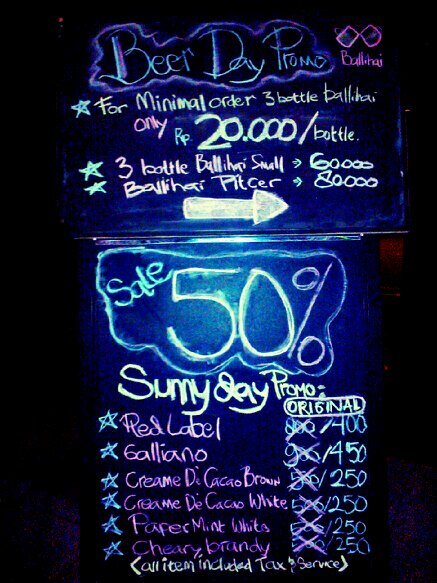 Beer Day Promo
Ballihai
For Minimal order 3 bottle ballihai
only Rp. 20.000/bottle.
3 bottle Ballihai Small → 60.000
Ballihai Pitcer → 80.000
Sale 50%
Sunny day Promo:
ORIGINAL
Red Label 800/400
Galliano 900/450
Creame Di Cacao Brown 500/250
Creame De Cacao White 500/250
PaperMint White 500/250
Cheary brandy 500/250
(all item included Tax & Service)